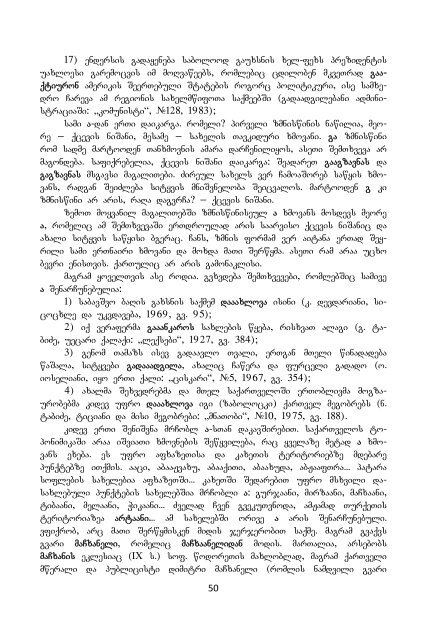 17) ენდერსის გადაყენება საბოლოოდ გაუხსნის ხელ-ფეხს პრეზიდენტის
უახლოესი გარემოცვის იმ მოღვაწეებს, რომლებიც ცდილობენ მკვეთრად გაა-
ქტიურონ ამერიკის შეერთებული შტატების როგორც პოლიტიკური, ისე სამხე-
დრო ჩარევა ამ რეგიონის სახელმწიფოთა საქმეებში (გადაადგილებანი ადმინი-
სტრაციაში: „კომუნისტი“, №128, 1983);
სამი ა-დან ერთი დაიკარგა. რომელი? პირველი ზმნისწინის ნაწილია, მეო-
რე – ქცევის ნიშანი, მესამე – სახელის თავკიდური ხმოვანი. გა ზმნისწინი
რომ სადმე მარტოოდენ თანხმოვნის ამარა დარჩენილიყოს, ასეთი შემთხვევა არ
მაგონდება. საფიქრებელია, ქცევის ნიშანი დაიკარგა: შეადარეთ გააგზავნას და
გაგზავნას მსგავსი მაგალითები. ძირეულ სახელს ვერ ჩამოაშორებ საწყის ხმო-
ვანს, რადგან შეიძლება სიტყვის მნიშვნელობა შეიცვალოს. მარტოოდენ გ კი
ზმნისწინი არ არის, რაღა დაგვრჩა? – ქცევის ნიშანი.
ზემოთ მოყვანილ მაგალითებში ზმნისწინისეულ ა ხმოვანს მოსდევს მეორე
ა, რომელიც ამ შემთხვევაში ერთდროულად არის საარვისო ქცევის ნიშანიც და
ახალი სიტყვის საწყისი ბგერაც. ჩანს, ზმნის ფორმამ ვერ აიტანა ერთად შეყ-
რილი სამი ერთნაირი ხმოვანი და მოხდა მათი შერწყმა. ასეთი რამ არაა უცხო
ბევრი ენისთვის. ქართულიც არ არის გამონაკლისი.
მაგრამ ყოველთვის ასე როდია. გვხვდება შემთხვევები, რომლებშიც სამივე
ა შენარჩუნებულია:
1) საბავშვო ბაღის გახსნის საქმემ დააახლოვა ისინი (კ. დევდარიანი, სი-
ცოცხლე და უკვდავება, 1969, გვ. 95);
2) იქ ვერაფერმა გააანკაროს სახლების წყება, რისხვათ აღაგი (გ. ტა-
ბიძე, უეცარი ქალაქი: „ლექსები“, 1927, გვ. 384);
3) გენომ თამაზს ისევ გადაავლო თვალი, ერთგან მთელი წინადადება
წაშალა, სიტყვები გადააადგილა, ახალიც ჩაწერა და ფურცელი გადადო (ო.
იოსელიანი, იყო ერთი ქალი: „ცისკარი“, №5, 1967, გვ. 354);
4) ახალმა შეხვედრებმა და მთელ საქართველოში ერთობლივმა მოგზა-
ურობებმა კიდევ უფრო დააახლოვა იგი (ზაბოლოცკი) ქართველ მეგობრებს (ნ.
ტაბიძე, ტიციანი და მისი მეგობრები: „მნათობი“, №10, 1975, გვ. 188).
კიდევ ერთი შენიშვნა მრჩობლ ა-სთან დაკავშირებით. საქართველოს ტო-
პონიმიკაში არაა იშვიათი ხმოვნების შეწყვილება, რაც ყველაზე მეტად ა ხმო-
ვანს ეხება. ეს უფრო აფხაზეთისა და კახეთის ტერიტორიებზე მდებარე
პუნქტებზე ითქმის. ააცი, აბააჟვახუ, აბააქითი, აბაახუდა, აბჟააფთრა... პატარა
სოფლების სახელებია აფხაზეთში... კახეთში შედარებით უფრო მსხვილი და-
სახლებული პუნქტების სახელებშია მრჩობლი ა: გურჯაანი, მირზაანი, მაჩხაანი,
ტიბაანი, მელაანი, ჭიკაანი... ძველად ჩვენ გვეკუთვნოდა, ამჟამად თურქეთის
ტერიტორიაზეა არტაანი... ამ სახელებში ორივე ა არის შენარჩუნებული.
ვფიქრობ, არც მათი შერწყმისკენ მიდის ჯერჯერობით საქმე. მაგრამ გვაქვს
გვარი მაჩხანელი, რომელიც მაჩხაანელიდან მოდის. მართალია, არსებობს
მაჩხანის ეკლესიაც (IX ს.) სოფ. წოდორეთის მახლობლად, მაგრამ ქართველი
მწერალი და პუბლიცისტი დიმიტრი მაჩხანელი (რომლის ნამდვილი გვარი
50